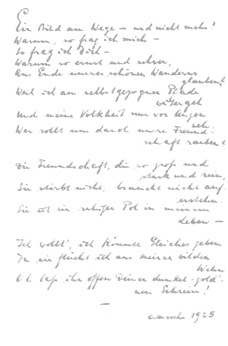 Ein Bild am Wege – und nicht mehr?
Warum, so frag ich mich –
So frag ich Dich –
Warum so ernst und schwer,
Am Ende unsres schönen Wanderns
glauben?
Weil ich am selbstgezognen Pfade
Und meine Volkheit nur vor Augen
seh.
Wer sollt uns darob unsre Freund-
schaft rauben?
Die Freundschaft, die so groß und
stark und rein,
Sie stirbt nicht, braucht nicht auf-
erstehn.
Sie ist ein ruhiger Pol in meinem
Leben –
Ich wollt', ich könnte Gleiches geben
Da sie flücht ich aus meinen wilden
Wehn
ihr offen Deiner dunkel-gold-
nen
1925